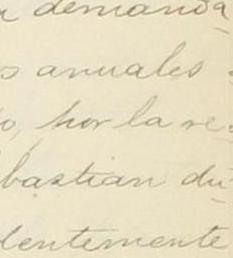 a demanda
s anuales
o, por la re-
bastian du-
dentemente